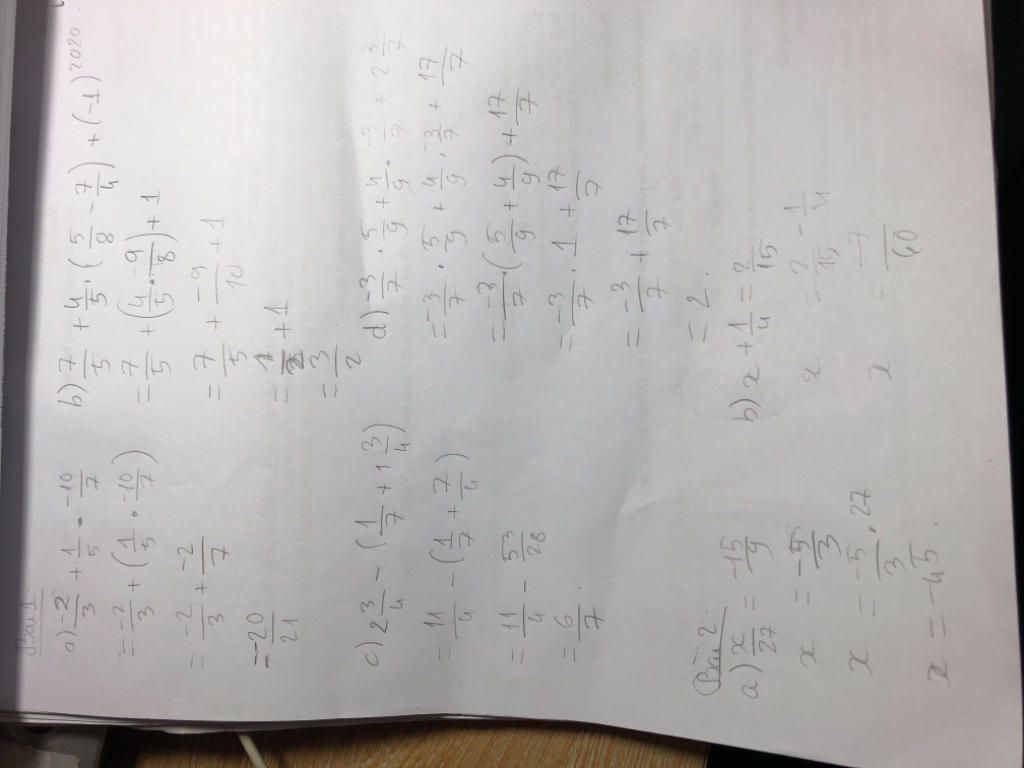 Bài 1
a) -2/3 + 1/5 . -10/7
= -2/3 + (1/5 . -10/7)
= -2/3 + -2/7
= -20/21
b) 7/5 + 4/5 . (5/8 - 7/4) + (-1)^2020
= 7/5 + (4/5 . -9/8) + 1
= 7/5 + -9/10 + 1
= 1/2 + 1
= 3/2
c) 2 3/4 - (1/7 + 1 3/4)
= 11/4 - (1/7 + 7/4)
= 11/4 - 53/28
= 6/7.
d) -3/7 . 5/9 + 4/9 . -3/7 + 2 3/7
= -3/7 . 5/9 + 4/9 . -3/7 + 17/7
= -3/7 . (5/9 + 4/9) + 17/7
= -3/7 . 1 + 17/7
= -3/7 + 17/7
= 2.
Bài 2.
a) x/27 = -15/9
x = -5/3
x = -5/3 . 27
x = -45.
b) x + 1/4 = 2/15
x = 2/15 - 1/4
x = -7/60